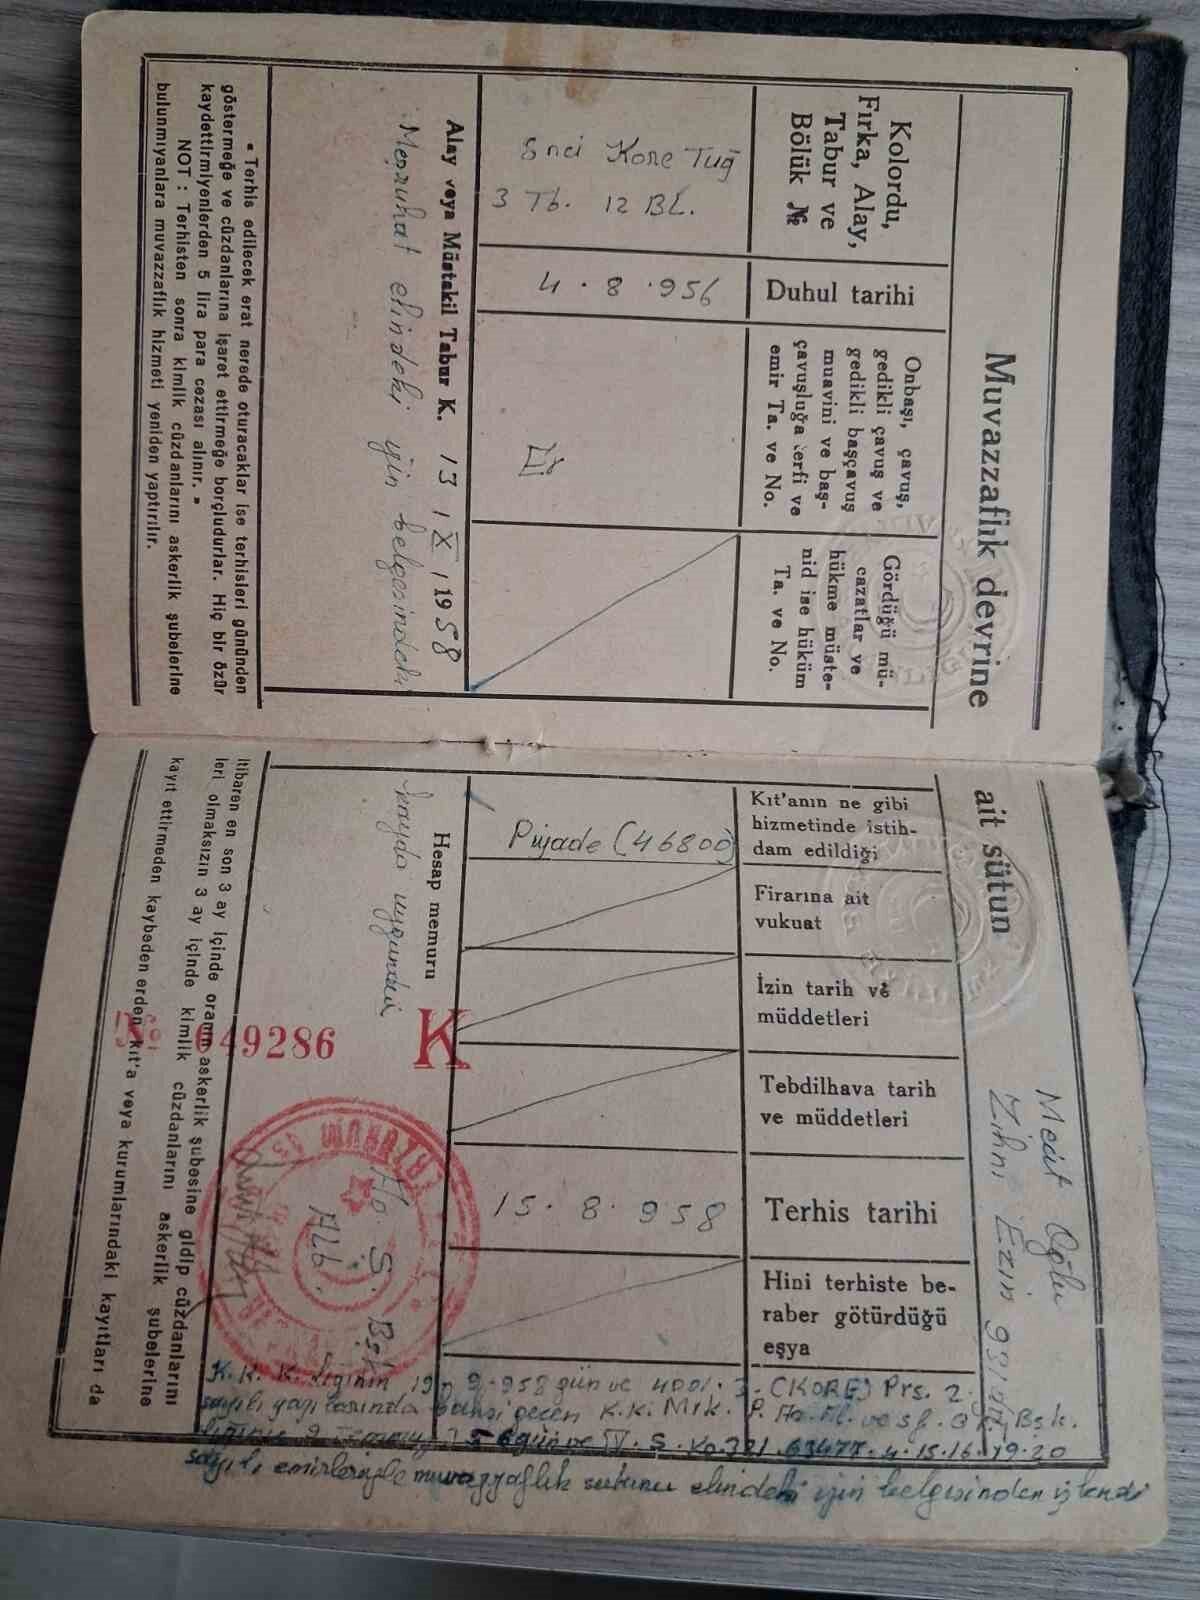 Muvazzaflık devrine
Kolordu,
Fırka, Alay,
Tabur ve
Bölük №
Duhul tarihi
Onbaşı, çavuş,
gedikli çavuş ve
gedikli başçavuş
muavini ve baş-
çavuşluğa terfi ve
emir Ta. ve No.
Gördüğü mü-
cazatlar ve
hükme müste-
nid ise hüküm
Ta. ve No.
5nci Kore Tuğ
3 Tb. 12 BL.
4.8.956
Er
Alay veya Müstakil Tabur K. 13 / X / 1958
Meşruhat elindeki için belgesindedir
« Terhis edilecek erat nerede oturacaklar ise terhisleri gününden
göstermeğe ve cüzdanlarına işaret ettirmeğe borçludurlar. Hiç bir özür
kaydettirmiyenlerden 5 lira para cezası alınır. »
NOT : Terhisten sonra kimlik cüzdanlarını askerlik şubelerine
bulunmıyanlara muvazzaflık hizmeti yeniden yaptırılır.
ait sütun
Mecit Oğlu
Zihni Ezin 931
Kıt'anın ne gibi
hizmetinde istih-
dam edildiği
Firarına ait
vukuat
İzin tarih ve
müddetleri
Tebdilhava tarih
ve müddetleri
Terhis tarihi
Hini terhiste be-
raber götürdüğü
eşya
Piyade (46800)
15.8.958
Hesap memuru
kayda uygundur
K
№ 049286
Ho. Ş. Bşk
Alb.
itibaren en son 3 ay içinde oranın askerlik şubesine gidip cüzdanlarını
leri olmaksızın 3 ay içinde kimlik cüzdanlarını askerlik şubelerine
kayıt ettirmeden kaybeden erden kıt'a veya kurumlarındaki kayıtları da
K.K.K.lığının 19.9.958 gün ve 4001.3-(KORE) Prs. 2.
sayılı yazılarında bahsi geçen K.K. Mrk.
sayılı emirleriyle muvazzaflık sutunu elindeki için belgesinden işlendi